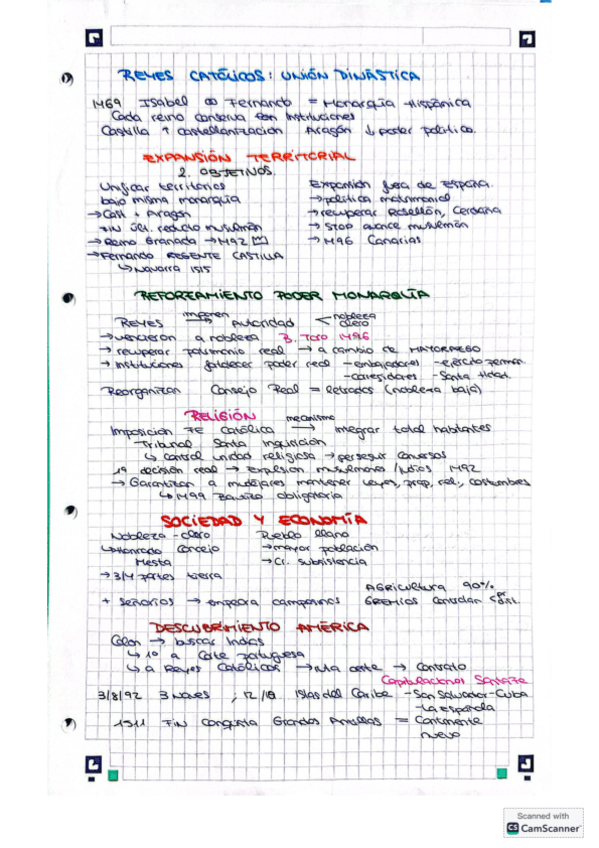 REYES CATÓLICOS: UNIÓN DINÁSTICA
1469 Isabel ∞ Fernando = Monarquía Hispánica
Cada reino conserva con Instituciones
Castilla ↑ castellanización Aragón ↓ poder político.
EXPANSIÓN TERRITORIAL
2. OBJETIVOS.
Unificar territorios
bajo misma monarquía
→ Cast + Aragón
FIN últ. reducto musulmán
→ Reino Granada → 1492
→ Fernando REGENTE CASTILLA
↳ Navarra 1515
Expansión fuera de España.
→ política matrimonial
→ recuperar Rosellón, Cerdaña
→ STOP avance musulmán
→ 1496 Canarias
REFORZAMIENTO PODER MONARQUÍA
Reyes imponen → Autoridad < nobleza clero
→ vencieron a nobleza B. Toro 1496
→ recuperar patrimonio real → a cambio de MAYORAZGO
→ Instituciones fortalecer poder real - embajadores - ejército perman.
- corregidores - Santa Hdad.
Reorganizan Consejo Real = letrados (nobleza baja)
RELIGIÓN
Imposición FE Católica mecanismo → integrar total habitantes
Tribunal Santa Inquisición
↳ control unidad religiosa → perseguir conversos
1ª decisión real → Expulsión musulmanes / Judíos 1492
→ Garantizan a mudéjares mantener leyes, prop, rel., costumbres
↳ 1499 Bautizo obligatorio
SOCIEDAD Y ECONOMÍA
Nobleza - clero
↳ Honrado Concejo
Mesta
→ 3/4 partes tierra
Pueblo llano
→ mayor población
→ Cr. subsistencia
AGRICULTURA 90%
+ Señoríos → empeora campesinos GREMIOS controlan
DESCUBRIMIENTO AMÉRICA
Colón → buscar Indias
↳ 1º a Corte portuguesa
↳ a Reyes Católicos → ruta oeste → contrato
Capitulaciones Santa Fe
3/8/92 3 naves ; 12/10 Islas del Caribe - San Salvador - Cuba
- La Española
1511 FIN Conquista Grandes Antillas = Continente
nuevo
Scanned with
CS CamScanner